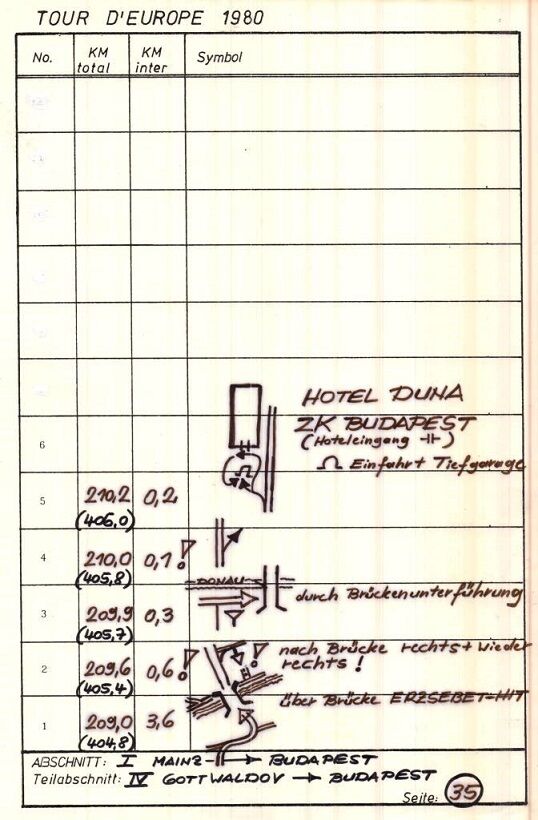 TOUR D'EUROPE 1980
No. KM total KM inter Symbol
HOTEL DUNA
ZK BUDAPEST
6 (Hoteleingang ⊣⊢)
Ω Einfahrt Tiefgarage
5 210,2 0,2
(406,0)
4 210,0 0,1 !
(405,8)
DONAU
durch Brückenunterführung
3 209,9 0,3
(405,7)
nach Brücke rechts + wieder
2 209,6 0,6 ! ! rechts !
(405,4)
über Brücke ERZSEBET-HIT
1 209,0 3,6
(404,8)
ABSCHNITT: I MAINZ → BUDAPEST
Teilabschnitt: IV GOTTWALDOV → BUDAPEST
Seite: 35